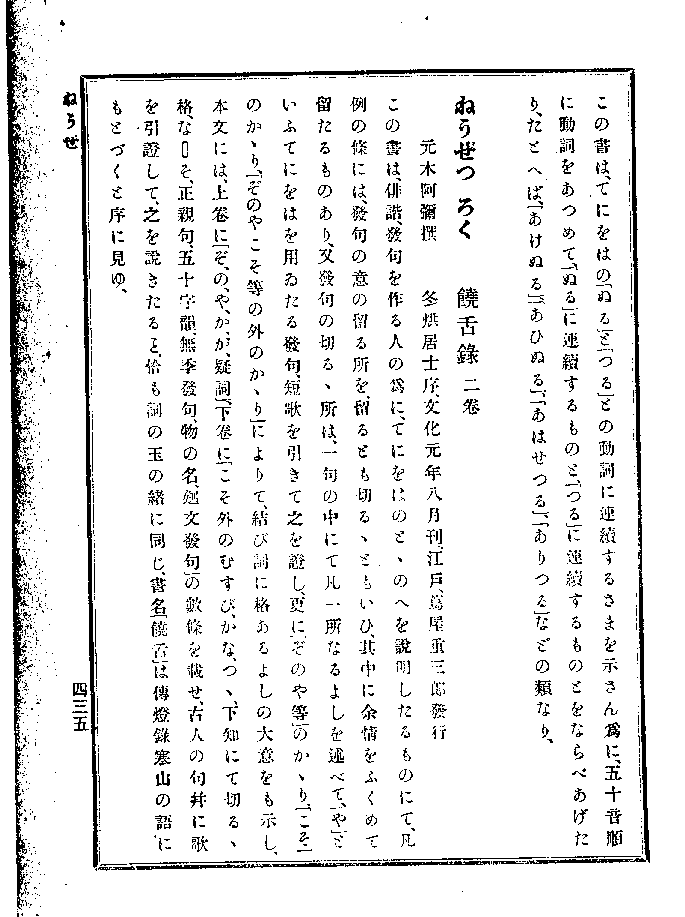 この書は、てにをはの「ぬる」と「つる」との動詞に連續するさまを示さん爲に、五十音順
に動詞をあつめて、「ぬる」に連續するものと「つる」に連續するものとをならべあげた
り、たとへば、「あけぬる」「あひぬる」、「あはせつる」、「ありつる」などの類なり、
ねうぜつ ろく　饒舌錄 二卷
元木阿彌撰　冬烘居士序、文化元年八月刊、江戸、蔦屋重三郎發行
この書は、俳諧、發句を作る人の爲に、てにをはのとゝのへを說明したるものにて、凡
例の條には、發句の意の留る所を、留るとも切るゝともいひ、其中に余情をふくめて
留たるものあり、又發句の切るゝ所は、一句の中にて凡一所なるよしを述べて、「や」と
いふてにをはを用ゐたる發句、短歌を引きて之を證し、更に「ぞのや等」のかゝり、「こそ」
のかゝり、「ぞのやこそ等の外のかゝり」によりて、結び詞に格あるよしの大意をも示し、
本文には、上卷に「ぞ、の、や、か、が、疑詞」、下卷に「こそ外のむすび、かな、つゝ、下知にて切るゝ
格、な そ、正親句、五十字韻、無季發句、物の名、廻文發句」の數條を載せ、古人の句幷に歌
を引證して、之を說きたると、恰も詞の玉の緖に同じ、書名「饒舌」は傳燈錄寒山の語に
もとづくと序に見ゆ、
ねうせ
四三五